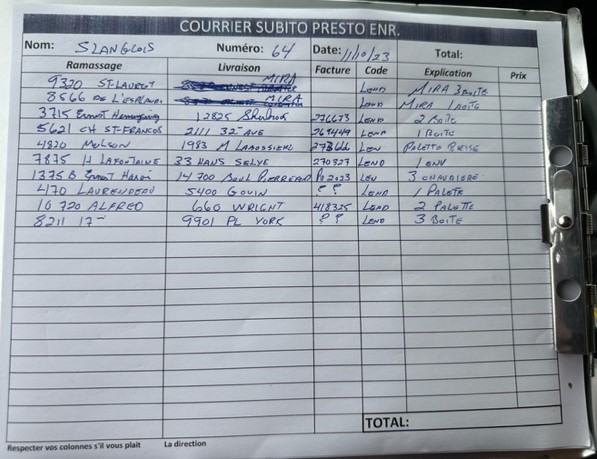 COURRIER SUBITO PRESTO ENR.
Nom: SLANGLOIS Numéro: 64 Date: 11/10/23 Total:
Ramassage Livraison Facture Code Explication Prix
9320 ST-LAURENT MIRA LEND MIRA 3 BOITE
8566 DE L'ESPLANADE MIRA LEND MIRA 1 BOITE
3715 Ernest Hemingway 12825 226673 LEND 2 BOITE
5621 CH ST-FRANCOIS 2111 32e AVE 269449 LEND 1 BOITE
4820 MOLSON 1983 M LEN PALETTE
7875 H LAFONTAINE 33 HANS SELYE 270327 LEND 1 ENV
1375 B 14700 Boul PIERREFOND Po2023 LEN 3 CHAUDIERE
4170 LAURENDEAU 5400 GOUIN ? ? LEND 1 PALETTE
10 720 ALFRED 660 WRIGHT 418325 LEND 2 PALETTE
8211 17e 9901 PL YORK ? ? LEND 3 BOITE
TOTAL:
Respecter vos colonnes s'il vous plait La direction